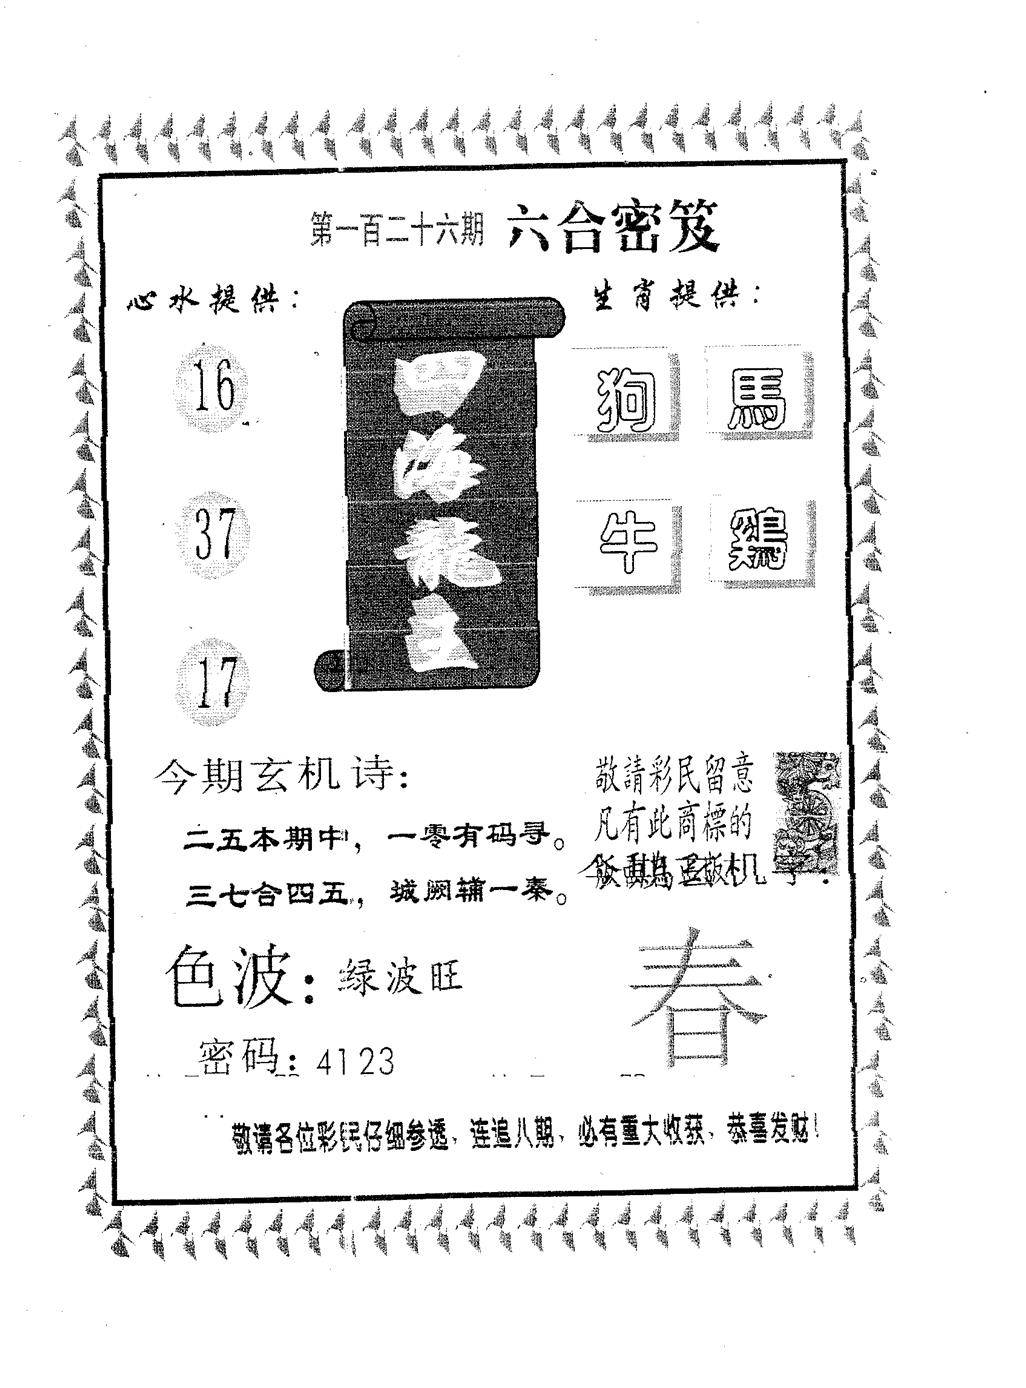 第一百二十六期 六合密笈
心水提供：
生肖提供：
16
37
17
四海龍王
狗 馬
牛 鷄
今期玄机诗：
二五本期中，一零有码寻。
三七合四五，城阙辅一秦。
敬請彩民留意
凡有此商標的
色波：绿波旺
春
密码：4123
敬请各位彩民仔细参透、连追八期、必有重大收获、恭喜发财！